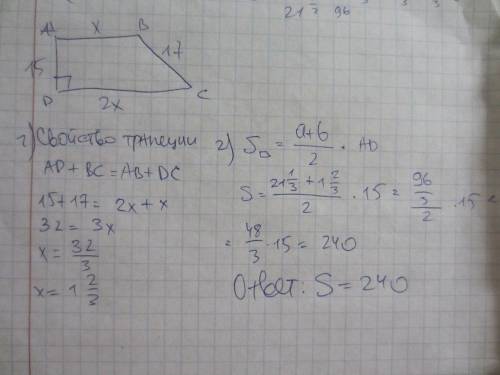 21 1/3 96
A x B
15 17
D 2x C
1) Свойство трапеции
AD + BC = AB + DC
15 + 17 = 2x + x
32 = 3x
x = 32/3
x = 1 2/3
2) S = (a+b)/2 · AD
S = (21 1/3 + 1 2/3)/2 · 15 = (96/3)/2 · 15 =
= 48/3 · 15 = 240
Ответ: S = 240